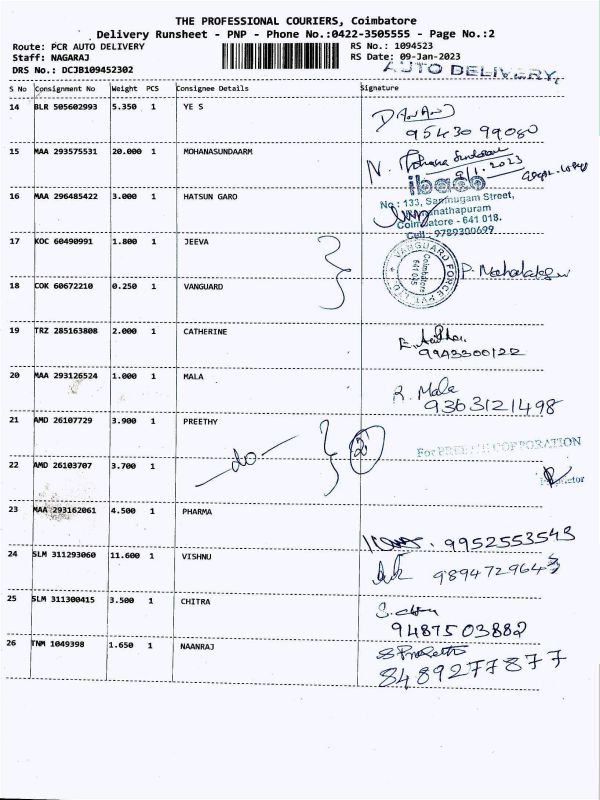 THE PROFESSIONAL COURIERS, Coimbatore
Delivery Runsheet - PNP - Phone No.:0422-3505555 - Page No.:2
Route: PCR AUTO DELIVERY RS No.: 1094523
Staff: NAGARAJ RS Date: 09-Jan-2023
DRS No.: DCJB109452302 AUTO DELIVERY
S No Consignment No Weight PCS Consignee Details Signature
14 BLR 505602993 5.350 1 YE S
95430 99080
15 MAA 293575531 20.000 1 MOHANASUNDAARM
N. Mohana Sundaram
9/1/2023
ibaco
16 MAA 296485422 3.000 1 HATSUN GARO
No : 133, Sanmugam Street,
Ramanathapuram
Coimbatore - 641 018.
Cell : 9789300699
17 KOC 60490991 1.800 1 JEEVA
VANGUARD FORCE PVT. LTD.
Coimbatore
641 045
18 COK 60672210 0.250 1 VANGUARD
19 TRZ 285163808 2.000 1 CATHERINE
9943300122
20 MAA 293126524 1.000 1 MALA
R. Mala
9363121498
21 AMD 26107729 3.900 1 PREETHY
-do- 2
For PREETHI CORPORATION
22 AMD 26103707 3.700 1
Proprietor
23 MAA 293162061 4.500 1 PHARMA
9952553543
24 SLM 311293060 11.600 1 VISHNU
9894729643
25 SLM 311300415 3.500 1 CHITRA
9487503882
26 TNM 1049398 1.650 1 NAANRAJ
8489277877